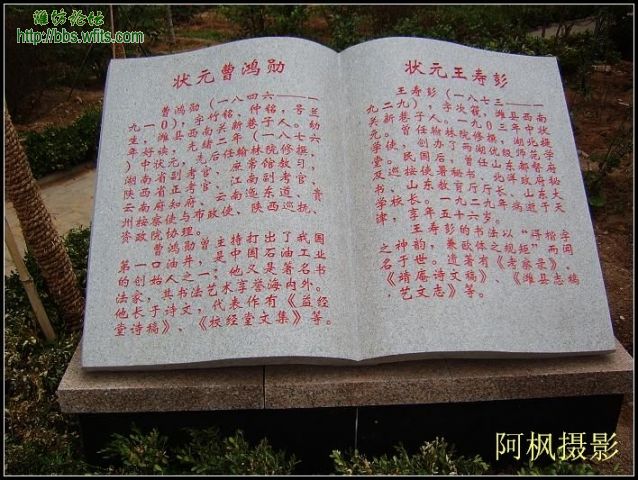 潍坊论坛
http://bbs.wfits.com
状元曹鸿勋
曹鸿勋（一八四六——一
九一〇），字竹铭，仲铭，号兰
生，潍县西南关新巷子人。幼
年好读，光绪二年（一八七六
）中状元，先后任翰林院修撰，
湖南省副考官，庶常馆教习，
陕西省正考官，江南副考官，
云南府知府、云南迤东道、贵
州按察使与布政使、陕西巡抚、
资政院协理。
曹鸿勋曾主持打出了我国
第一口油井，是中国石油工业
的创始人之一；他又是著名书
法家，其书法艺术享誉海内外。
他长于诗文，代表作有《益经
堂诗稿》、《校经堂文集》等。
状元王寿彭
王寿彭（一八七三——一
九二九），字次篯，潍县西南
关新巷子人。一九〇三年中状
元。曾任翰林院修撰，湖北提
学使，创办了两湖优级师范学
堂。民国后，曾任山东都督府
及巡按使署秘书、北洋政府秘
书、山东教育厅厅长、山东大
学校长。一九二九年病逝于天
津，享年五十六岁。
王寿彭的书法以“得楷字
之神韵，兼欧体之规矩”而闻
名于世。遗著有《考察录》、
《靖庵诗文稿》、《潍县志稿
·艺文志》等。
阿枫摄影